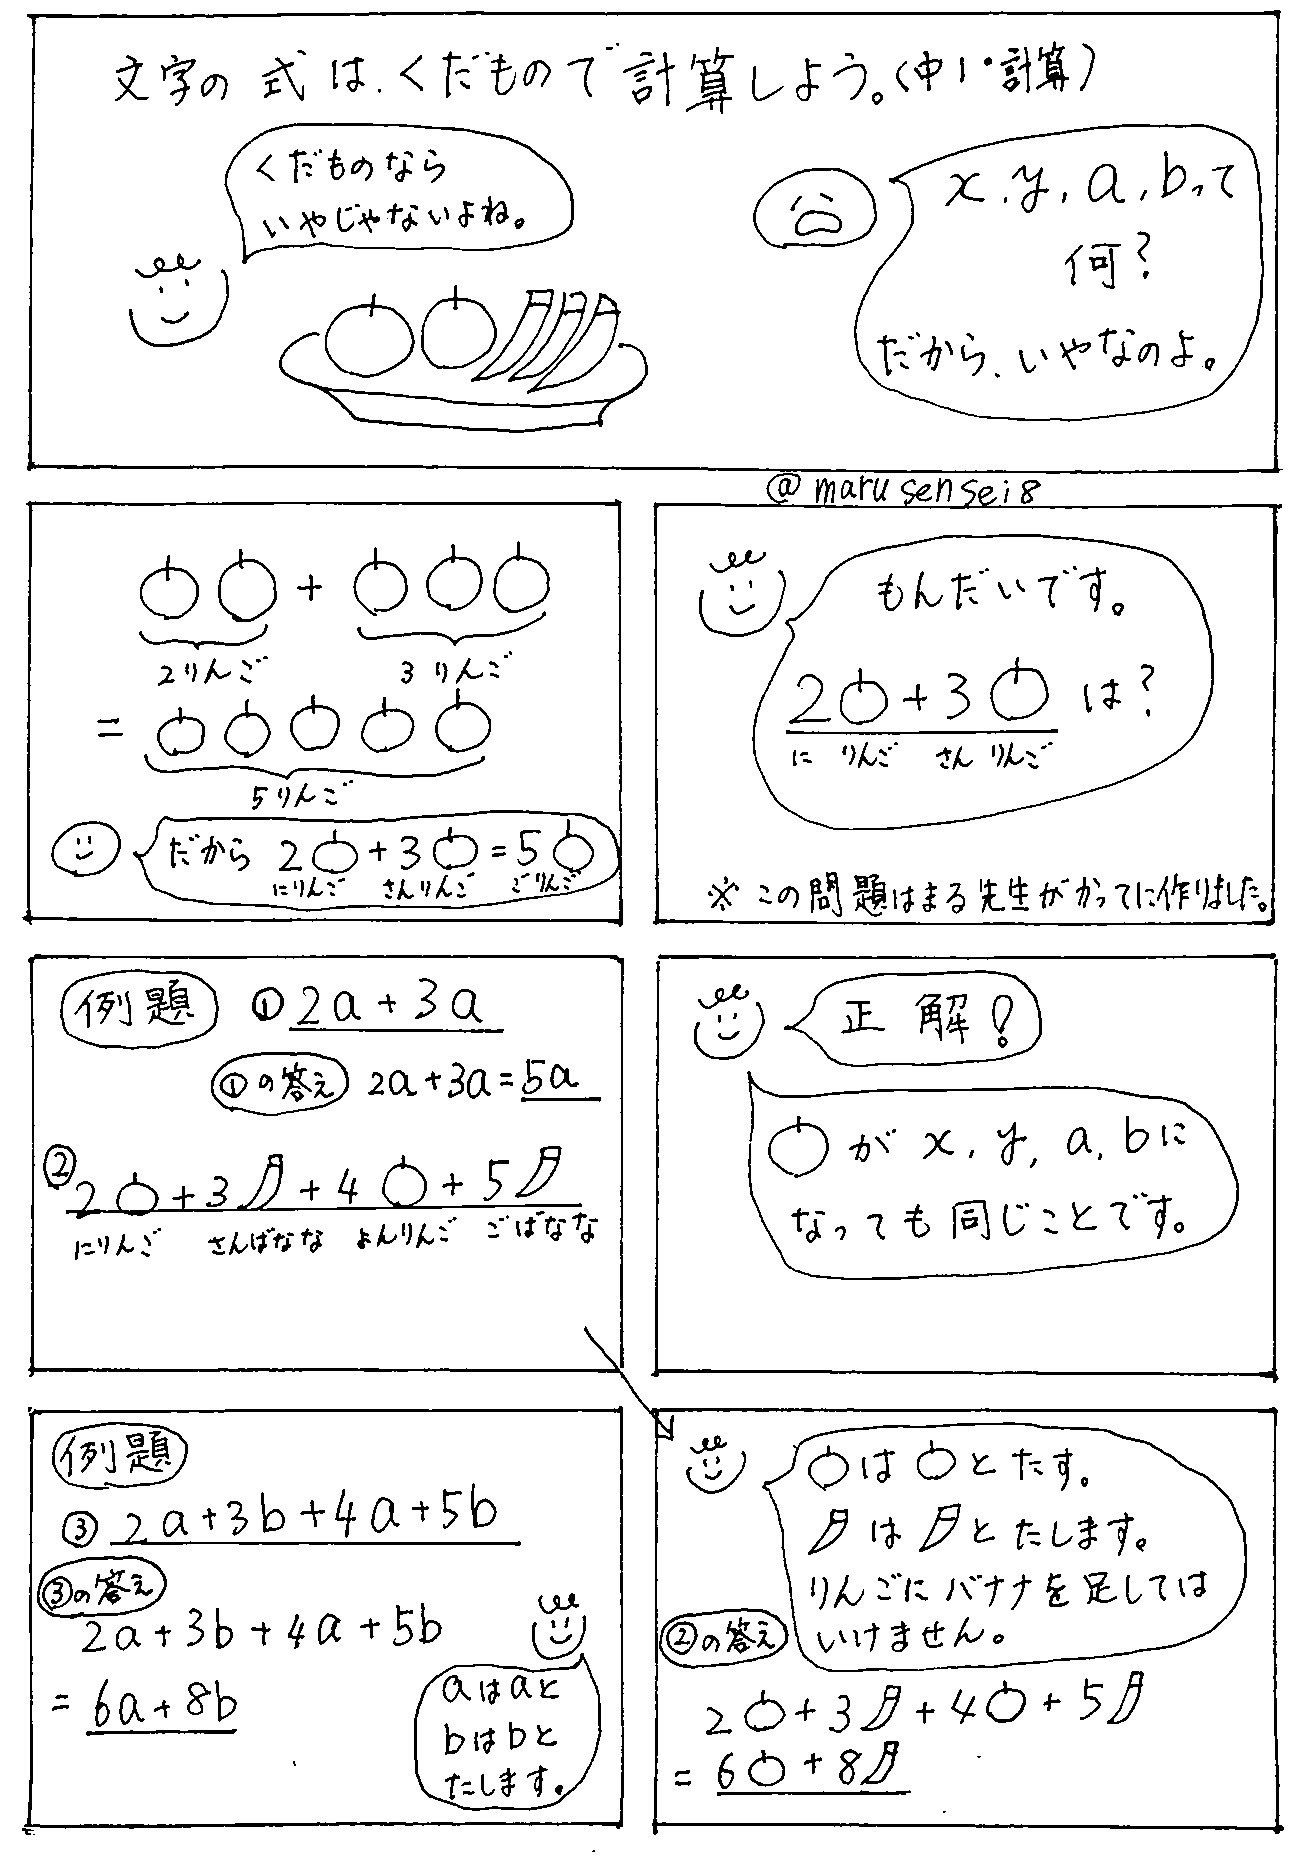 文字の式は、くだもので計算しよう。(中1・計算)
x、y、a、bって
何?
だから、いやなのよ。
くだものなら
いやじゃないよね。
@marusensei8
もんだいです。
2 + 3 は?
に りんご さん りんご
※この問題はまる先生がかってに作りました。
+
2りんご 3りんご
=
5りんご
だから 2 + 3 = 5
にりんご さんりんご ごりんご
正解!
が x、y、a、bに
なっても同じことです。
例題 ① 2a+3a
①の答え 2a+3a=5a
② 2 +3 +4 +5
にりんご さんばなな よんりんご ごばなな
は とたす。
は とたします。
りんごにバナナを足しては
いけません。
②の答え
2 +3 +4 +5
= 6 +8
例題
③ 2a+3b+4a+5b
③の答え
2a+3b+4a+5b
= 6a+8b
aはaと
bはbと
たします。